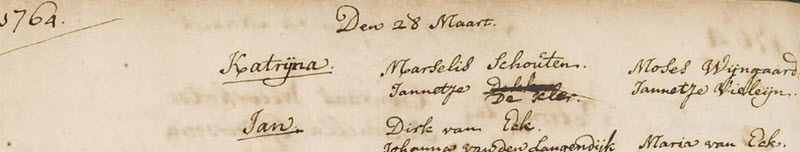 1764. Den 28 Maart.
Katrijna. Marselis Schouten. Moses Wijngaard
Jannetje De Kler. Jannetje Vieleijn.
Jan. Dirk van Eck.
Johanna van den Langendijk Maria van Eck.